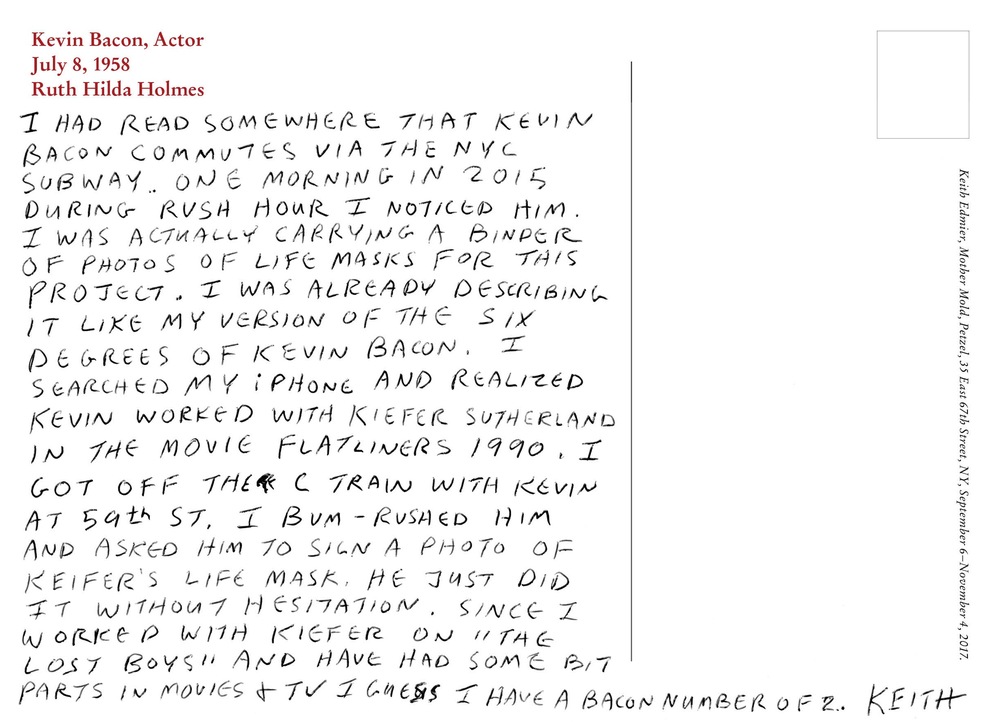 Kevin Bacon, Actor
July 8, 1958
Ruth Hilda Holmes
I HAD READ SOMEWHERE THAT KEVIN
BACON COMMUTES VIA THE NYC
SUBWAY.. ONE MORNING IN 2015
DURING RUSH HOUR I NOTICED HIM.
I WAS ACTUALLY CARRYING A BINDER
OF PHOTOS OF LIFE MASKS FOR THIS
PROJECT. I WAS ALREADY DESCRIBING
IT LIKE MY VERSION OF THE SIX
DEGREES OF KEVIN BACON. I
SEARCHED MY iPHONE AND REALIZED
KEVIN WORKED WITH KIEFER SUTHERLAND
IN THE MOVIE FLATLINERS 1990. I
GOT OFF THE C TRAIN WITH KEVIN
AT 59th ST. I BUM-RUSHED HIM
AND ASKED HIM TO SIGN A PHOTO OF
KEIFER'S LIFE MASK. HE JUST DID
IT WITHOUT HESITATION. SINCE I
WORKED WITH KIEFER ON "THE
LOST BOYS" AND HAVE HAD SOME BIT
PARTS IN MOVIES + TV I GUESS I HAVE A BACON NUMBER OF 2. KEITH
Keith Edmier, Mother Mold, Petzel, 35 East 67th Street, NY, September 6–November 4, 2017.